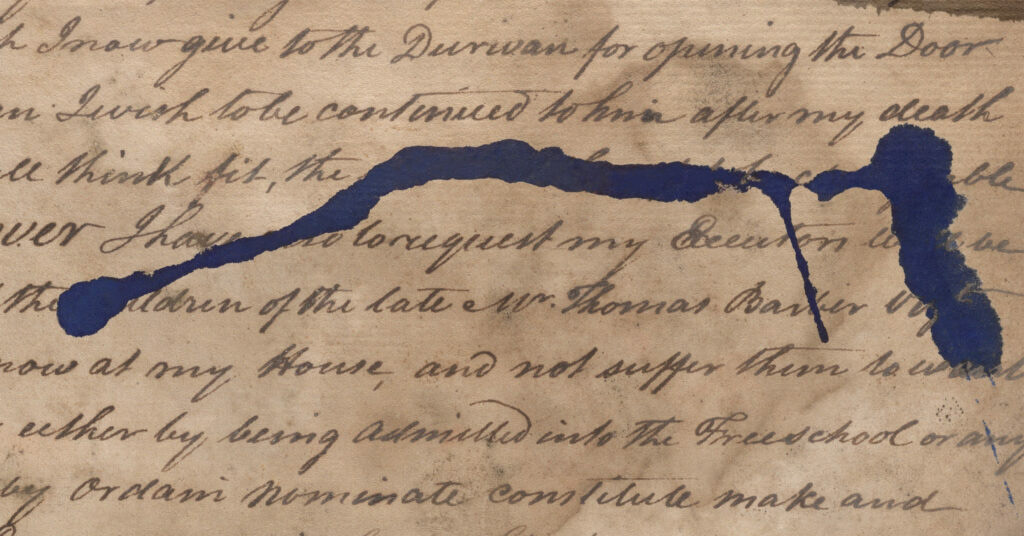 I now give to the Durwan for opening the Door
I wish to be continued to him after my death
think fit, the
I have to request my Executors be
the of the late Mr. Thomas
now at my House, and not suffer them to
either by being admitted into the Freeschool or any
by Ordain nominate constitute make and